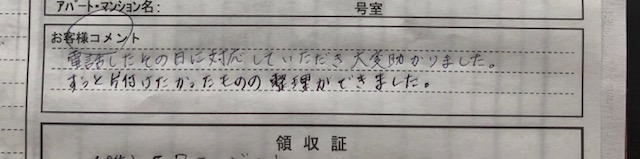 アパート・マンション名: 号室
お客様コメント
電話したその日に対応していただき大変助かりました。
ずっと片付けたかったものの整理ができました。
領収証